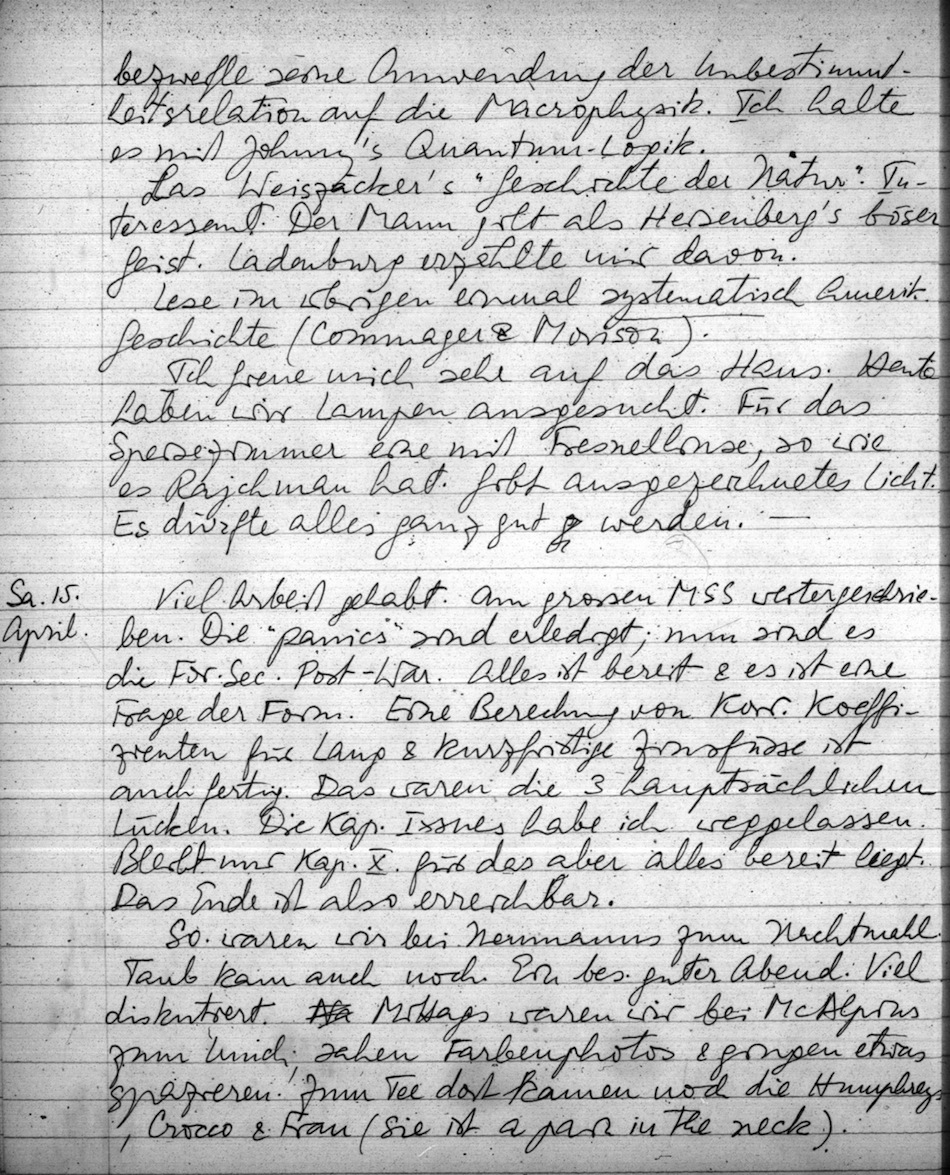 bezweifle seine Anwendung der Unbestimmt-
heitsrelation auf die Macrophysik. Ich halte
es mit Johnny's Quantum-Logik.
Las Weiszäcker's "Geschichte der Natur". In-
teressant. Der Mann gilt als Heisenberg's böser
Geist. Ladenburg erzählte mir davon.
Lese im übrigen einmal systematisch Amerik.
Geschichte (Commager & Morison).
Ich freue mich sehr auf das Haus. Heute
haben wir Lampen ausgesucht. Für das
Speisezimmer eine mit Fresnellinse, so wie
es Rajchman hat. Gibt ausgezeichnetes Licht.
Es dürfte alles ganz gut werden. —
Sa. 15.
April.
Viel Arbeit gehabt. Am grossen MSS weitergeschrie-
ben. Die "panics" sind erledigt; nun sind es
die For. Sec. Post-War. Alles ist bereit & es ist eine
Frage der Form. Eine Berechnung von Korr. Koeffi-
zienten für Lang & kurzfristige Zinsfüsse ist
auch fertig. Das waren die 3 hauptsächlichen
Lücken. Die Kap. Issues habe ich weggelassen.
Bleibt nur Kap. X. für das aber alles bereit liegt.
Das Ende ist also erreichbar.
So. waren wir bei Neumanns zum Nachtmahl.
Taub kam auch noch. Ein bes. guter Abend. Viel
diskutiert. Mittags waren wir bei McAlpins
zum Lunch, sahen Farbenphotos & gingen etwas
spazieren. Zum Tee dort kamen noch die Humphreys
, Crocco & Frau (Sie ist a pain in the neck).